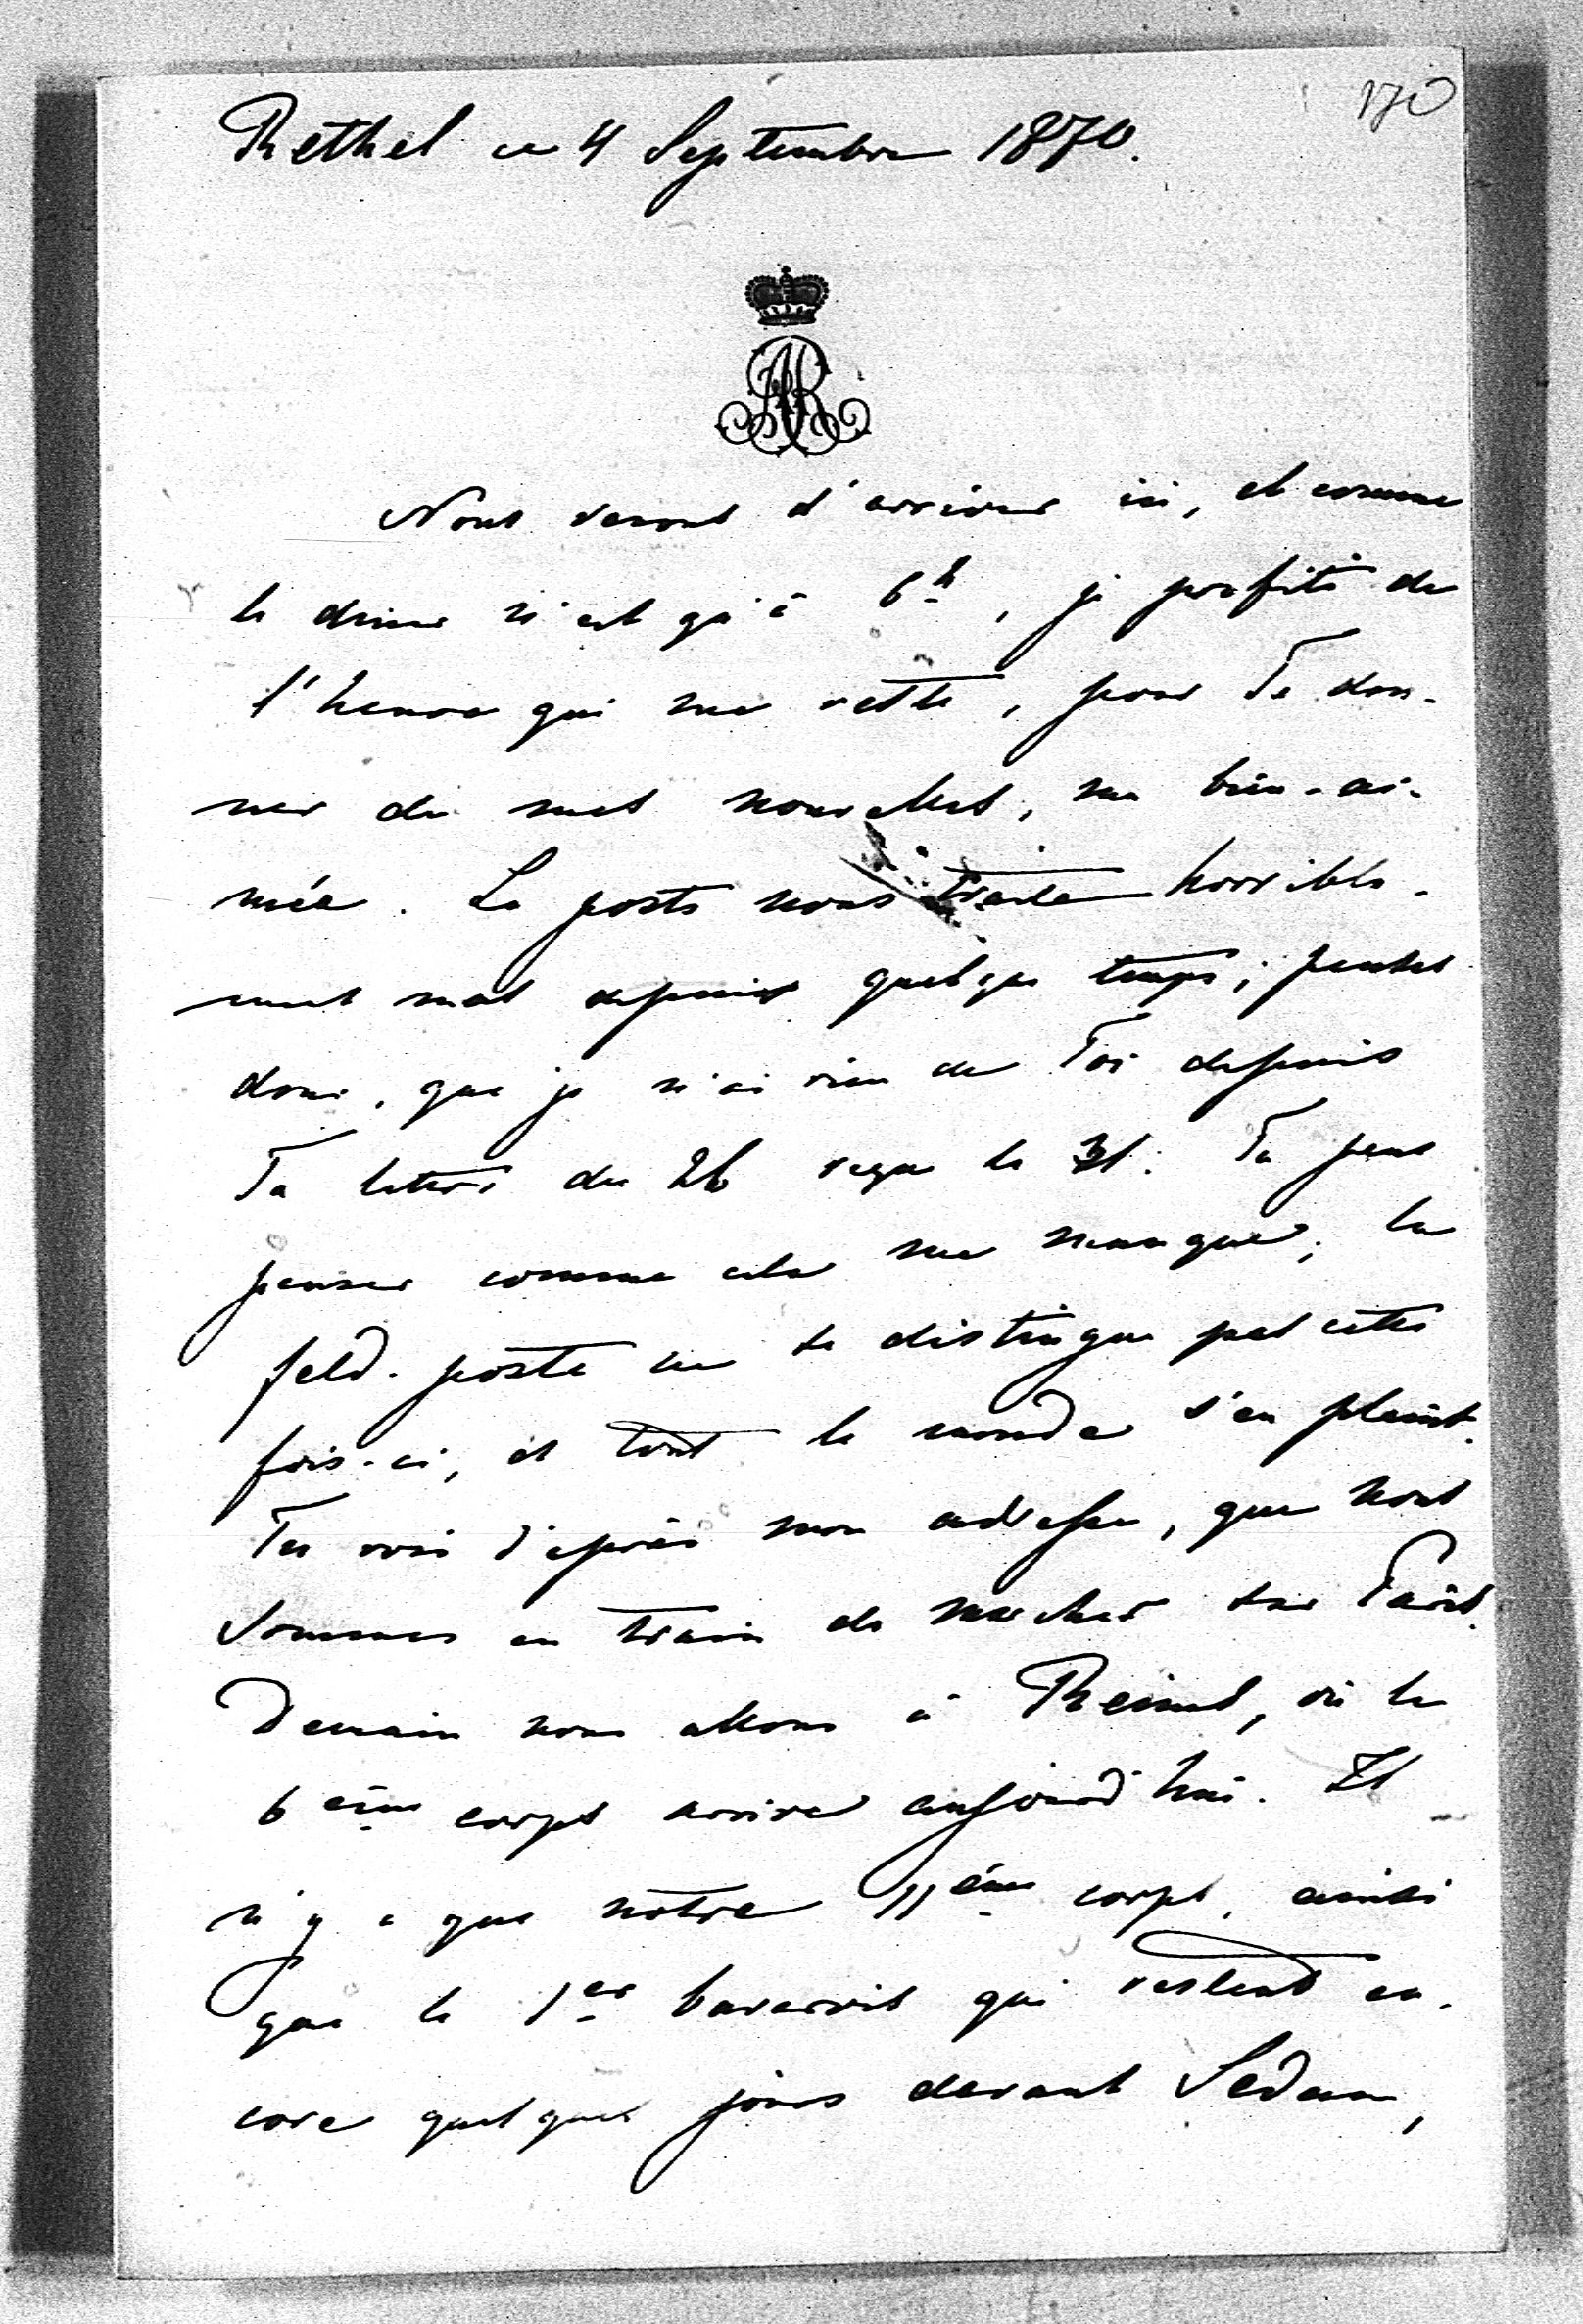 170
Rethel ce 4 Septembre 1870.
AR
Nous venons d'arriver ici, et comme
le diner n'est qu'à 6h, je profite de
l'heure qui me reste, pour Te don-
ner de mes nouvelles, ma bien-ai-
mée. La poste nous traite horrible-
ment mal depuis quelque temps; penses
donc, que je n'ai rien de Toi depuis
Ta lettre du 26 reçue le 31. Tu peux
penser comme cela me manque; la
feld-poste ne se distingue pas cette
fois-ci, et tout le monde s'en plaint.
Tu vois d'après mon adresse, que nous
sommes en train de marcher sur Paris.
Demain nous allons à Reims, où le
6ème corps arrive aujourd'hui. Il
n'y a que notre 11ème corps, ainsi
que le 1er bavarois qui restent en-
core quelques jours devant Sedan,